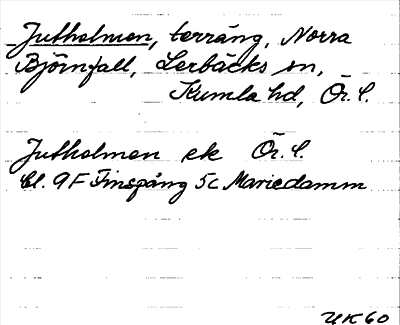 Jutholmen, terräng, Norra
Björnfall, Lerbäcks sn,
Kumla hd, Ör. l.
Jutholmen ek Ör. l.
Bl. 9F Finspång 5c Mariedamm
UK60